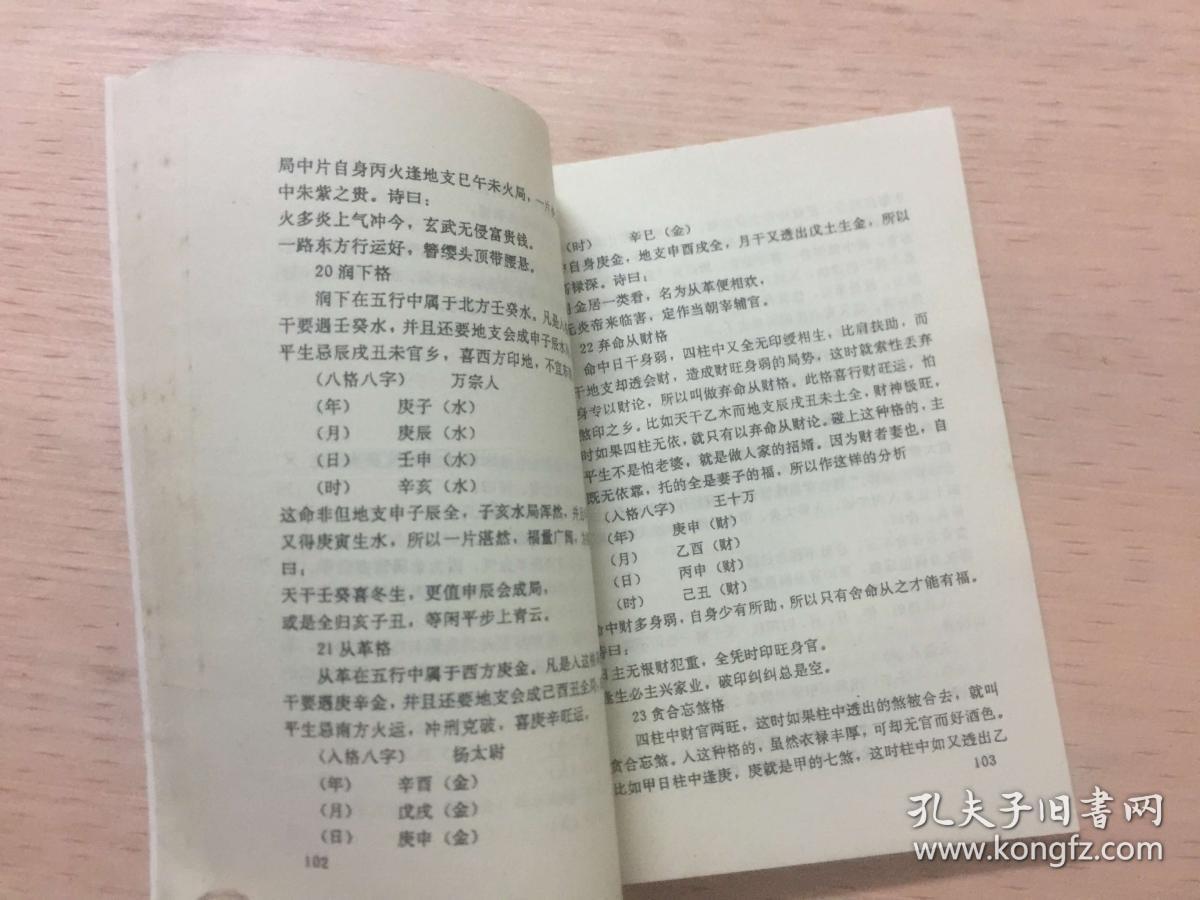 局中片自身丙火逢地支巳午未火局，一片
中朱紫之贵。诗曰：
火多炎上气冲今，玄武无侵富贵钱。
一路东方行运好，簪缨头顶带腰悬。
20润下格
润下在五行中属于北方壬癸水。凡是
干要遇壬癸水，并且还要地支会成申子辰水
平生忌辰戌丑未官乡，喜西方印地，不宜东
（八格八字） 万宗人
（年） 庚子（水）
（月） 庚辰（水）
（日） 壬申（水）
（时） 辛亥（水）
这命非但地支申子辰全，子亥水局浑然，并
又得庚寅生水，所以一片湛然，福量广阔，
曰：
天干壬癸喜冬生，更值申辰会成局，
或是全归亥子丑，等闲平步上青云。
21从革格
从革在五行中属于西方庚金。凡是入这格
干要遇庚辛金，并且还要地支会成己酉丑全局
平生忌南方火运，冲刑克破，喜庚辛旺运，
（入格八字） 杨太尉
（年） 辛酉（金）
（月） 戊戌（金）
（日） 庚申（金）
102
（时） 辛巳（金）
自身庚金，地支申酉戌全，月干又透出戊土生金，所以
禄深。诗曰：
金居一类看，名为从革便相欢，
炎帝来临害，定作当朝宰辅官。
22弃命从财格
命中日干身弱，四柱中又全无印绶相生，比肩扶助，而
干地支却透会财，造成财旺身弱的局势，这时就索性丢弃
身专以财论，所以叫做弃命从财格。此格喜行财旺运，怕
煞印之乡。比如天干乙木而地支辰戌丑未土全，财神极旺，
时如果四柱无依，就只有以弃命从财论。碰上这种格的，主
平生不是怕老婆，就是做人家的招婿。因为财者妻也，自
既无依靠，托的全是妻子的福，所以作这样的分析
（入格八字） 王十万
（年） 庚申（财）
（月） 乙酉（财）
（日） 丙申（财）
（时） 己丑（财）
命中财多身弱，自身少有所助，所以只有舍命从之才能有福。
诗曰：
日主无根财犯重，全凭时印旺身官。
逢生必主兴家业，破印纠纠总是空。
23贪合忘煞格
四柱中财官两旺，这时如果柱中透出的煞被合去，就叫
贪合忘煞。入这种格的，虽然衣禄丰厚，可却无官而好酒色。
比如甲日柱中逢庚，庚就是甲的七煞，这时柱中如又透出乙
103
孔夫子旧书网
www.kongfz.com